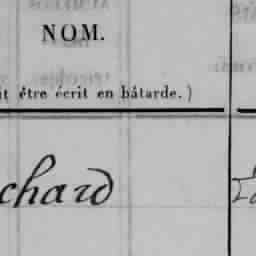 NOM.
it être écrit en bâtarde.)
chard